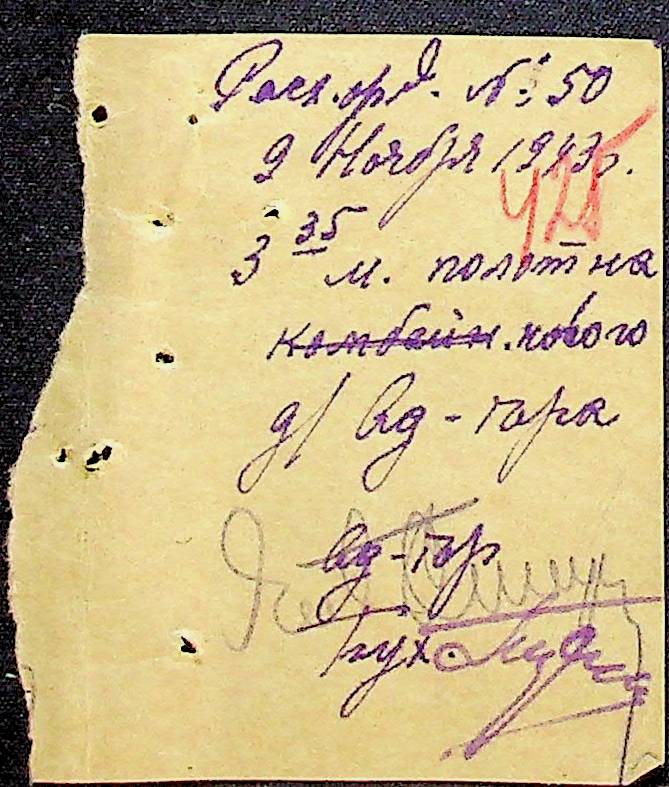 Расх. орд. №: 50
9 Ноября 1943г.
425
3 35 м. полотна
комбейн. нового
д/ Ад-тора
Ад-тор
Бух.